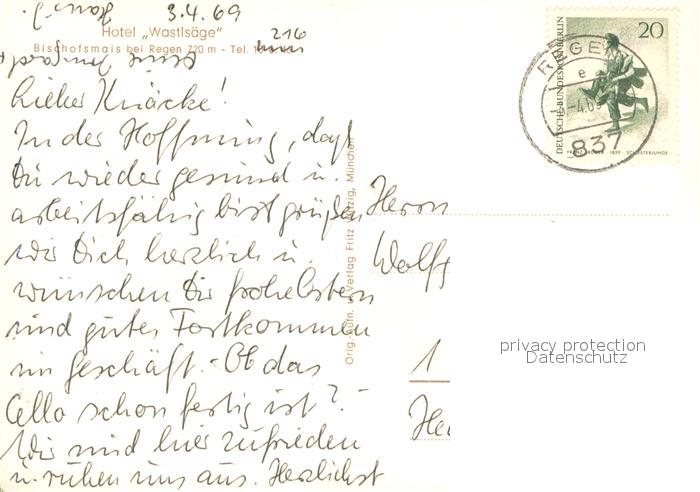 3.4.69
Hotel „Wastlsäge"
216
Bischofsmais bei Regen 720 m - Tel.
Lieber Knäcke!
In der Hoffnung, daß
Du wieder gesund u.
arbeitsfähig bist grüßen
wir Dich herzlich u.
wünschen Dir frohe Ostern
und gutes Fortkommen
im Geschäft. - Ob das
Cello schon fertig ist? -
Wir sind hier zufrieden
u. ruhen uns aus. Herzlichst
Orig. Aufn. u. Verlag Fritz Witzig, München
Herrn
Wolfg
1
He
20
DEUTSCHE BUNDESPOST BERLIN
FRANZ KRÜGER 1839 SCHUSTERJUNGE
REGEN
e
-4.69
837
privacy protection
Datenschutz